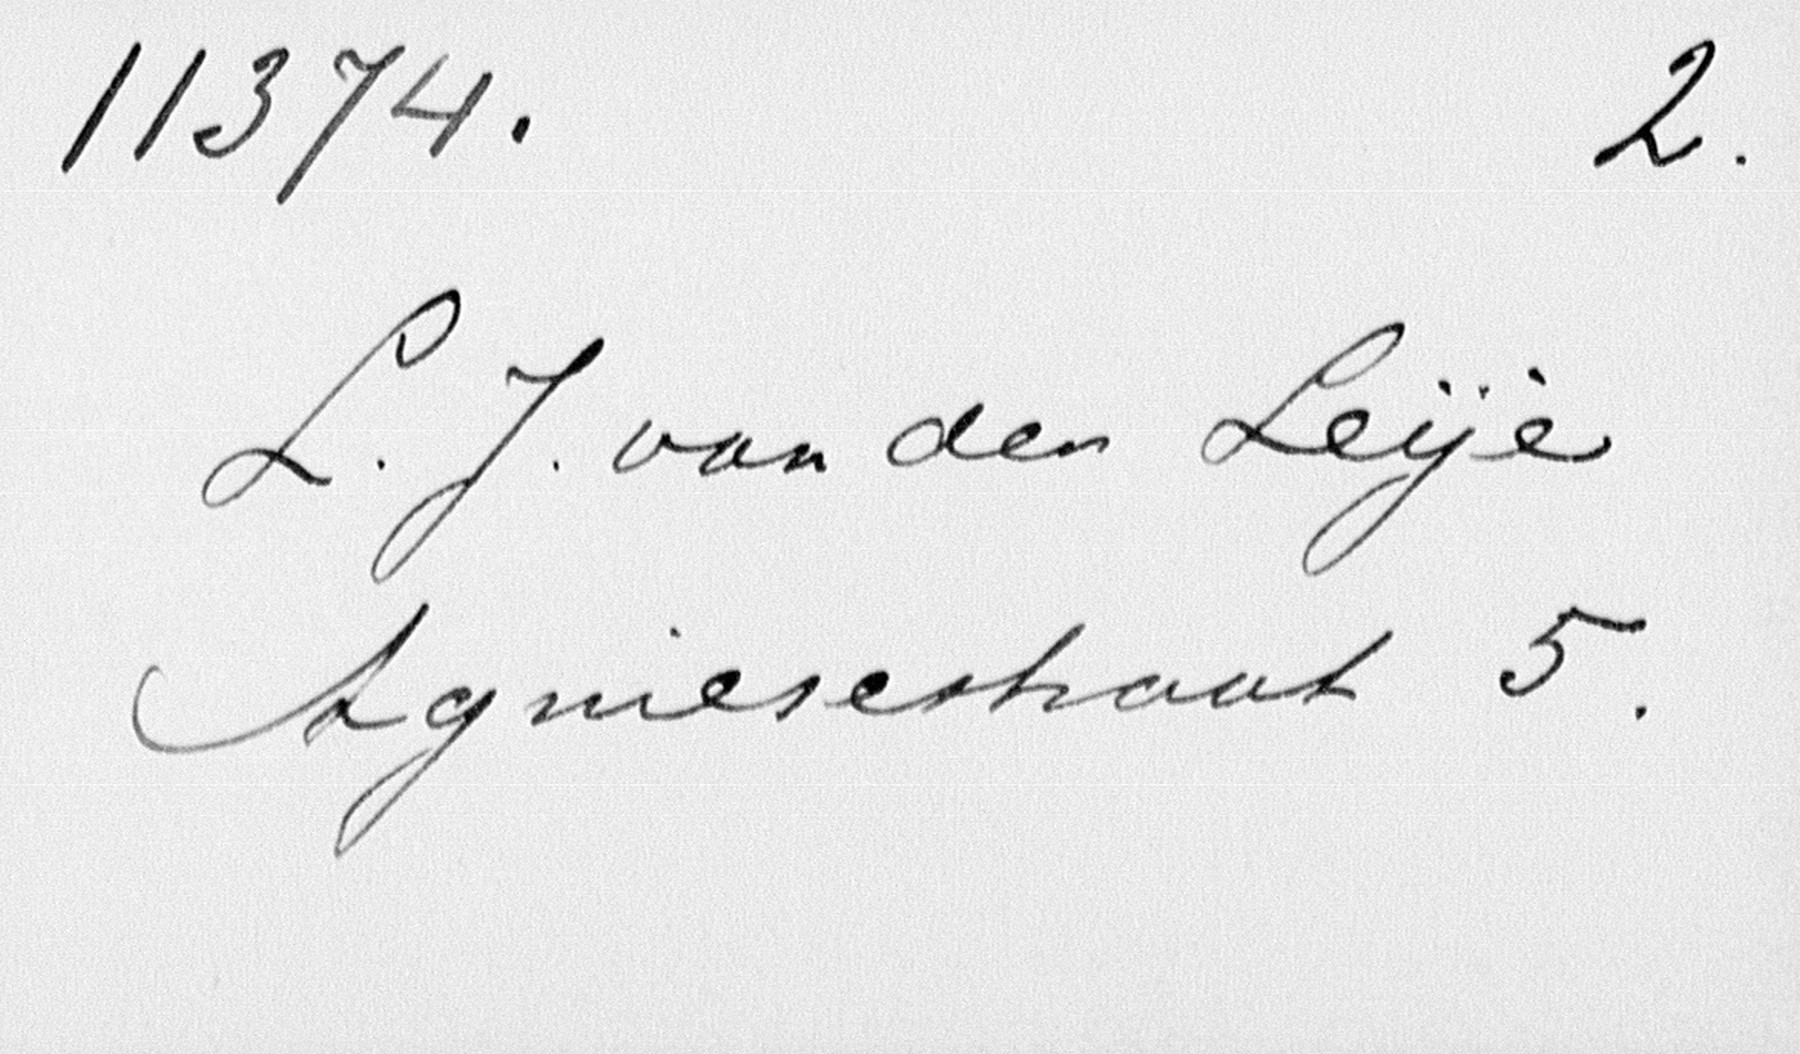 11374. 2.
L. J. van den Leije
Agniesestraat 5.